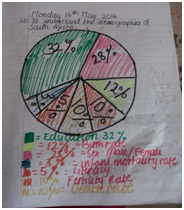 Monday 16th May 2016
LO: To understand the demographics of
South Africa.
32%
28%
12%
10%
10%
5%
3%
= Education 32%
= 12% = Birth rate
= 28% = Sex: Male/Female
= 3% = infant mortality rate
= 5% = Literacy
= 10% = Fertility Rate
= 10% = Death rate